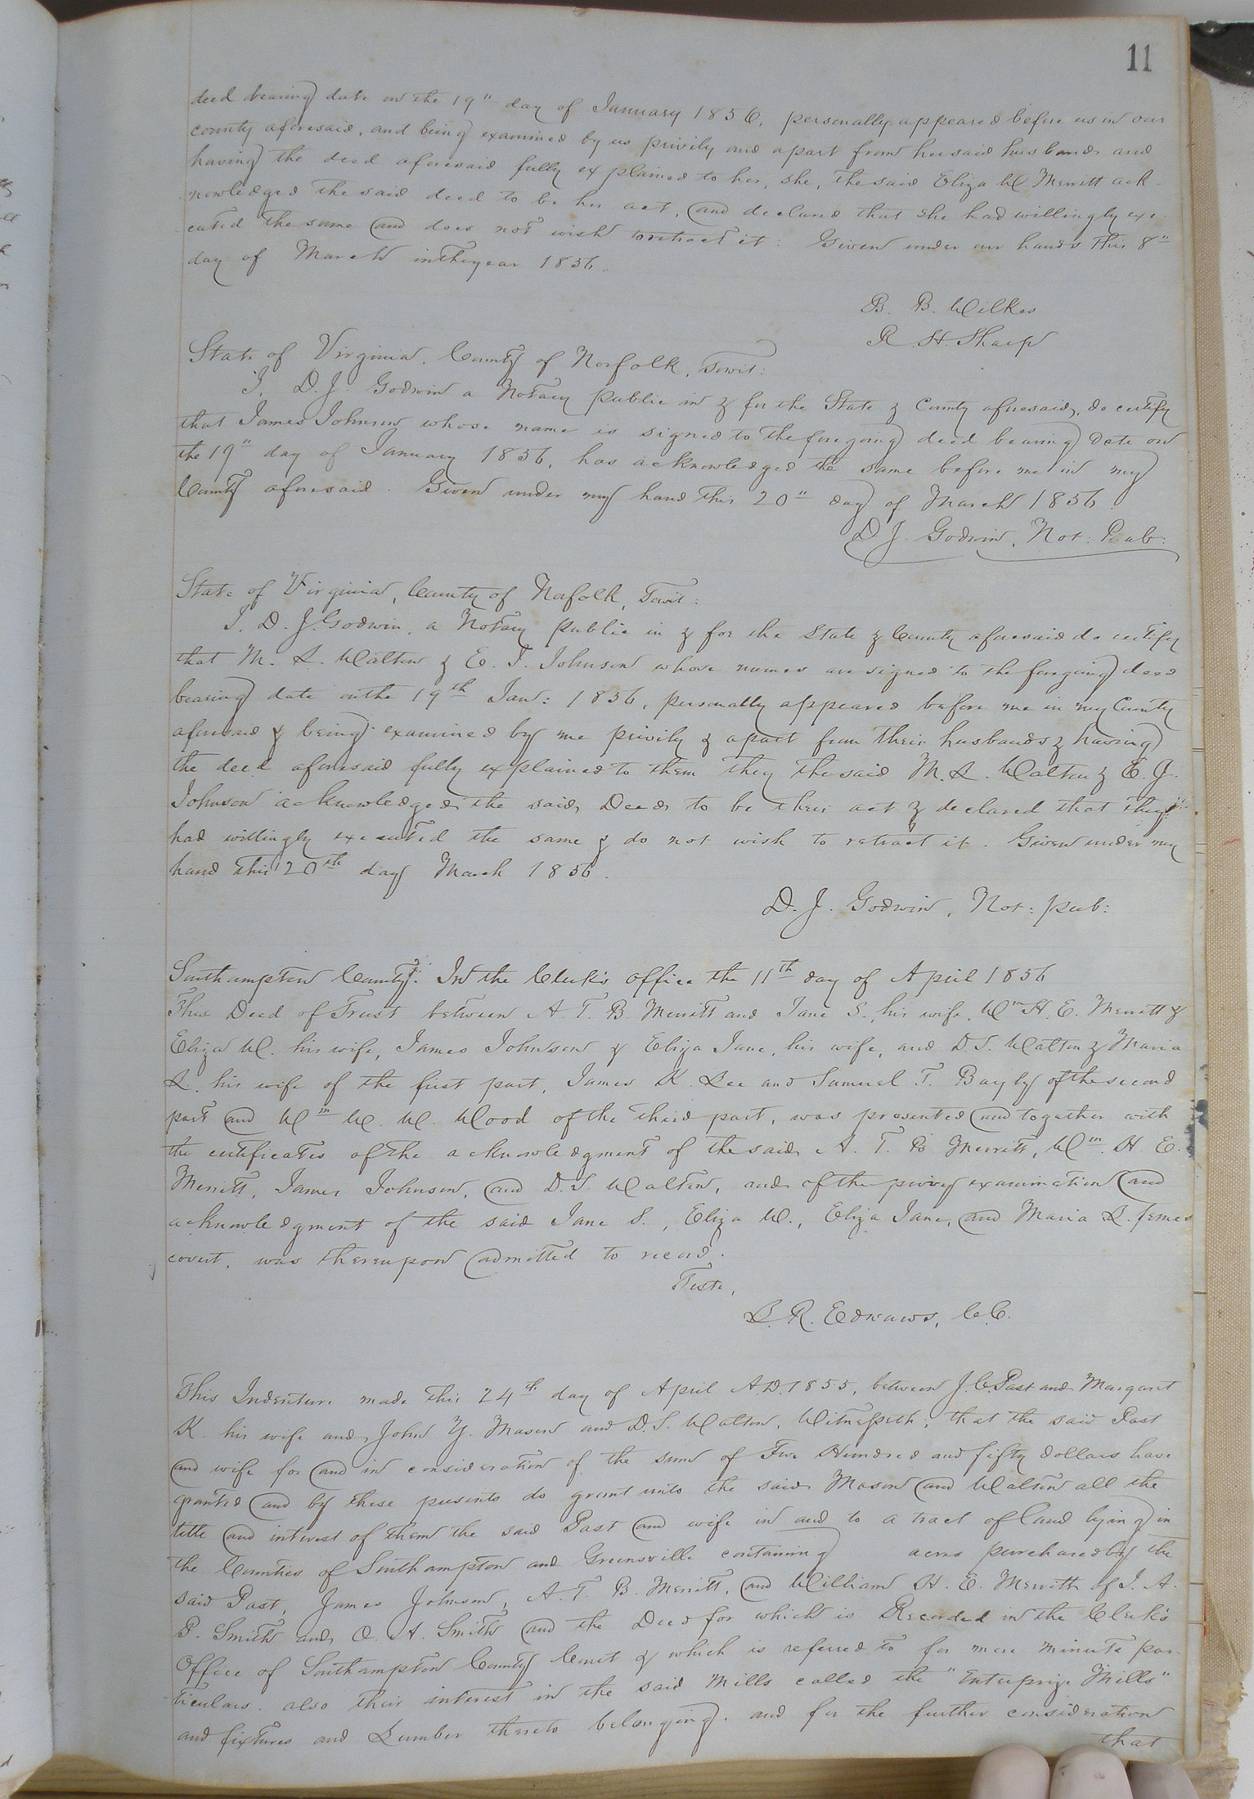 11
deed bearing date on the 19" day of January 1856, personally appeared before us in our
county aforesaid, and being examined by us privily and apart from her said husband and
having the deed aforesaid fully explained to her, she, the said Eliza W Merritt ack-
nowledged the said deed to be her act, and declared that she had willingly exe-
cuted the same and does not wish to retract it: Given under our hands this 8"
day of March in the year 1856.
B. B. Wilkes
R H Sharp
State of Virginia, County of Norfolk, Towit:
I, D. J. Godwin a Notary Public in & for the State & County aforesaid, do certify
that James Johnson whose name is signed to the foregoing deed bearing date on
the 19" day of January 1856, has acknowledged the same before me in my
County aforesaid. Given under my hand this 20" day of March 1856.
D J Godwin, Not: Pub:
State of Virginia, County of Norfolk, Towit:
I, D. J. Godwin, a Notary Public in & for the State & County aforesaid do certify
that M. L. Walton & E. J. Johnson whose names are signed to the foregoing deed
bearing date on the 19th Jan: 1856, personally appeared before me in my County
aforesaid & being examined by me privily & apart from their husbands & having
the deed aforesaid fully explained to them they the said M. L. Walton & E. J.
Johnson acknowledged the said Deed to be their act & declared that they
had willingly executed the same & do not wish to retract it. Given under my
hand this 20th day March 1856.
D. J. Godwin, Not: pub:
Southampton County: In the Clerk's office the 11th day of April 1856
This Deed of Trust between A. T. B. Merritt and Jane S. his wife, Wm H. E. Merritt &
Eliza W. his wife, James Johnson & Eliza Jane, his wife, and D. S. Walton & Maria
L. his wife of the first part, James K. Lee and Samuel T. Bayly of the second
part and Wm W. W. Wood of the third part, was presented and together with
the certificates of the acknowledgment of the said A. T. B Merritt, Wm. H E.
Merritt, James Johnson, and D. S. Walton, and of the privy examination and
acknowledgment of the said Jane S., Eliza W., Eliza Jane, and Maria L. femes
covert, was thereupon admitted to record.
Teste,
L. R. Edwards, C.C.
This Indenture made this 24th day of April A.D. 1855, between J. C. Past and Margaret
K. his wife and John Y. Mason and D. S. Walton, Witnesseth; that the said Past
and wife for and in consideration of the sum of Five Hundred and fifty dollars have
granted and by these presents do grant unto the said Mason and Walton all the
title and interest of them the said Past and wife in and to a tract of land lying in
the Counties of Southampton and Greensville containing acres purchased by the
said Past, James Johnson, A. T. B. Merritt, and William H. E. Merritt of J. A.
P. Smith and O. H. Smith and the Deed for which is Recorded in the Clerk's
Office of Southampton County Court & which is referred to for more minute par-
ticulars. also their interest in the said Mills called the "Enterprize Mills"
and fixtures and Lumber thereto belonging. and for the further consideration
that